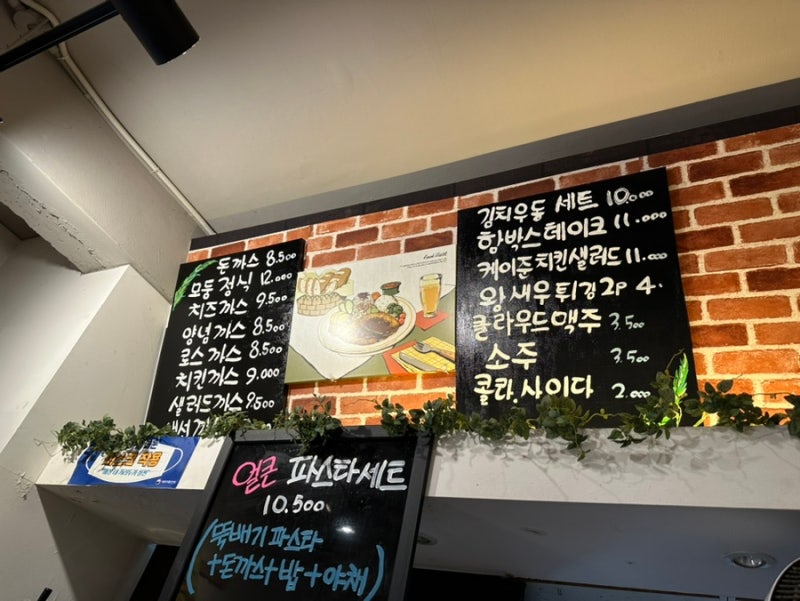 돈까스 8.500
모듬정식 12.000
치즈까스 9.500
양념까스 8.500
로스까스 8.500
치킨까스 9.000
샐러드까스 9.500
김치우동 세트 10.000
함박스테이크 11.000
케이준치킨샐러드 11.000
왕새우튀김 2P 4.
클라우드맥주 3.500
소주 3.500
콜라.사이다 2.000
얼큰 파스타세트
10.500
(뚝배기 파스타
+돈까스+밥+야채)